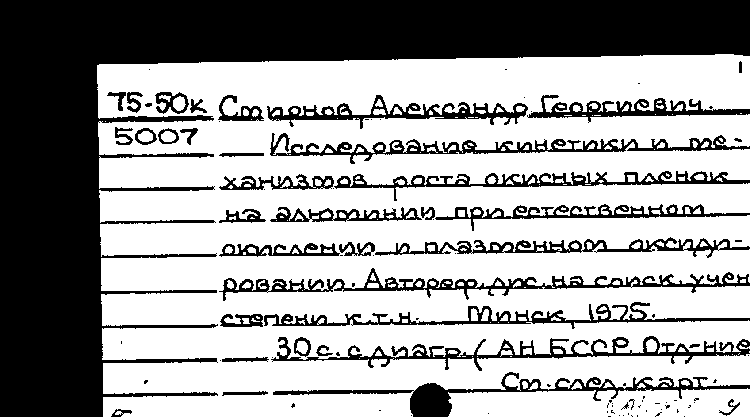 75-50к Смирнов, Александр Георгиевич.
5007 Исследование кинетики и ме-
ханизмов роста окисных пленок
на алюминии при естественном
окислении и плазменном оксиди-
ровании. Автореф. дис. на соиск. учен
степени к.т.н. Минск, 1975.
30 с. с диагр. (АН БССР. Отд-ние
См. след. карт.